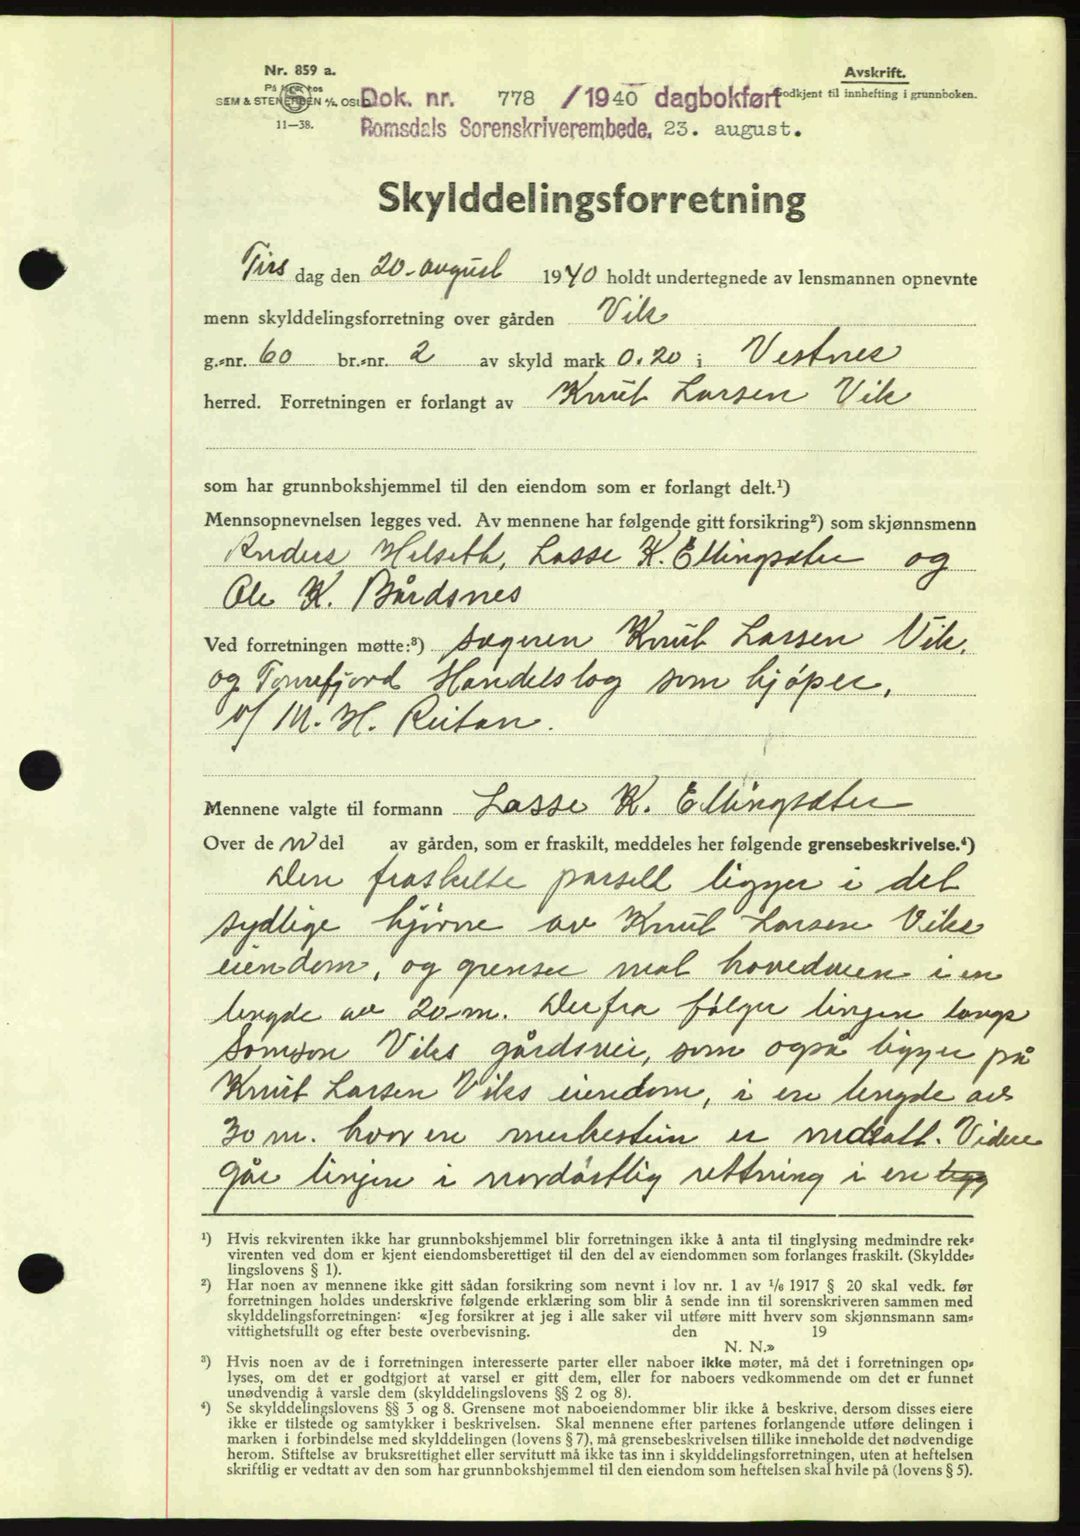 Nr. 859 a.
På lager hos
SEM & STENERSEN A/S, OSLO
11—38.
Avskrift.
Godkjent til innhefting i grunnboken.
Dok. nr. 778 /1940 dagbokført
Romsdals Sorenskriverembede, 23. august.
Skylddelingsforretning
Tirs dag den 20. august 1940 holdt undertegnede av lensmannen opnevnte
menn skylddelingsforretning over gården Vik
g.-nr. 60 br.-nr. 2 av skyld mark 0.20 i Vestnes
herred. Forretningen er forlangt av Knut Larsen Vik
som har grunnbokshjemmel til den eiendom som er forlangt delt.¹)
Mennsopnevnelsen legges ved. Av mennene har følgende gitt forsikring²) som skjønnsmenn
Anders Helseth, Lasse K. Ellingsæter og
Ole K. Bårdsnes
Ved forretningen møtte:³) sageren Knut Larsen Vik,
og Tomrefjord Handelslag som kjøper,
v/ M. H. Reitan.
Mennene valgte til formann Lasse K. Ellingsæter
Over de n del av gården, som er fraskilt, meddeles her følgende grensebeskrivelse.⁴)
Den fraskilte parsell ligger i det
sydlige hjørne av Knut Larsen Viks
eiendom, og grenser mot hovedveien i en
lengde av 20 m. Derfra følger linjen langs
Samson Viks gårdsvei, som også ligger på
Knut Larsen Viks eiendom, i en lengde av
30 m. hvor en merkestein er nedsatt. Videre
går linjen i nordøstlig rettning i en
¹) Hvis rekvirenten ikke har grunnbokshjemmel blir forretningen ikke å anta til tinglysing medmindre rek-
virenten ved dom er kjent eiendomsberettiget til den del av eiendommen som forlanges fraskilt. (Skyldde-
lingslovens § 1).
²) Har noen av mennene ikke gitt sådan forsikring som nevnt i lov nr. 1 av 1/6 1917 § 20 skal vedk. før
forretningen holdes underskrive følgende erklæring som blir å sende inn til sorenskriveren sammen med
skylddelingsforretningen: «Jeg forsikrer at jeg i alle saker vil utføre mitt hverv som skjønnsmann sam-
vittighetsfullt og efter beste overbevisning. den 19
N. N.»
³) Hvis noen av de i forretningen interesserte parter eller naboer ikke møter, må det i forretningen op-
lyses, om det er godtgjort at varsel er gitt dem, eller for naboers vedkommende om det er funnet
unødvendig å varsle dem (skylddelingslovens §§ 2 og 8).
⁴) Se skylddelingslovens §§ 3 og 8. Grensene mot naboeiendommer blir ikke å beskrive, dersom disses eiere
ikke er tilstede og samtykker i beskrivelsen. Skal mennene efter partenes forlangende utføre delingen i
marken i forbindelse med skylddelingen (lovens § 7), må grensebeskrivelsen tillike inneholde det nødvendige
herom. Stiftelse av bruksrettighet eller servitutt må ikke tas inn i skylddelingsforretningen, uten at heftelsen
skriftlig er vedtatt av den som har grunnbokshjemmel til den eiendom som heftelsen skal hvile på (lovens § 5).